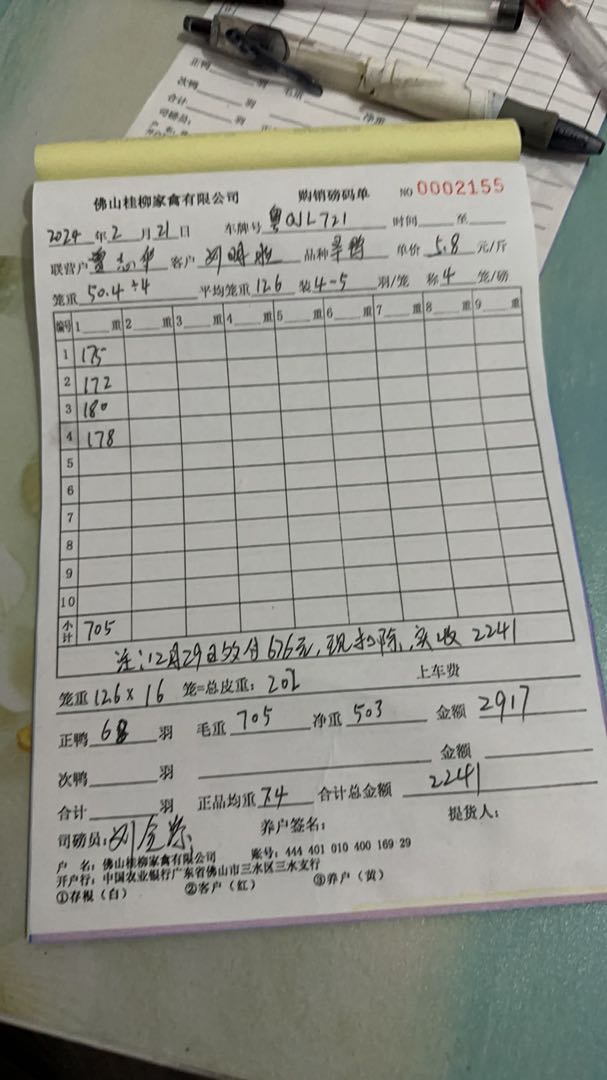 正鸭 羽 毛重
次鸭 羽
合计 羽
司磅员:
佛山桂柳家禽有限公司 购销磅码单 NO 0002155
2024年2月21日 车牌号 粤QJL721 时间 至
联营户 客户 刘 品种 单价5.8元/斤
笼重50.4÷4 平均笼重126 装4-5羽/笼 称4笼/磅
编号 1 重 2 重 3 重 4 重 5 重 6 重 7 重 8 重 9 重
1 175
2 172
3 180
4 178
5
6
7
8
9
10
小计 705
注:12月29日 付676元,现扣除,实收2241
笼重126×16 笼=总皮重:202 上车费
正鸭68羽 毛重705 净重503 金额2917
次鸭 羽 金额
合计 羽 正品均重7.4 合计总金额2241
司磅员:刘 养户签名: 提货人:
户 名:佛山桂柳家禽有限公司 账号:444 401 010 400 169 29
开户行:中国农业银行广东省佛山市三水区三水支行
①存根(白) ②客户(红) ③养户(黄)